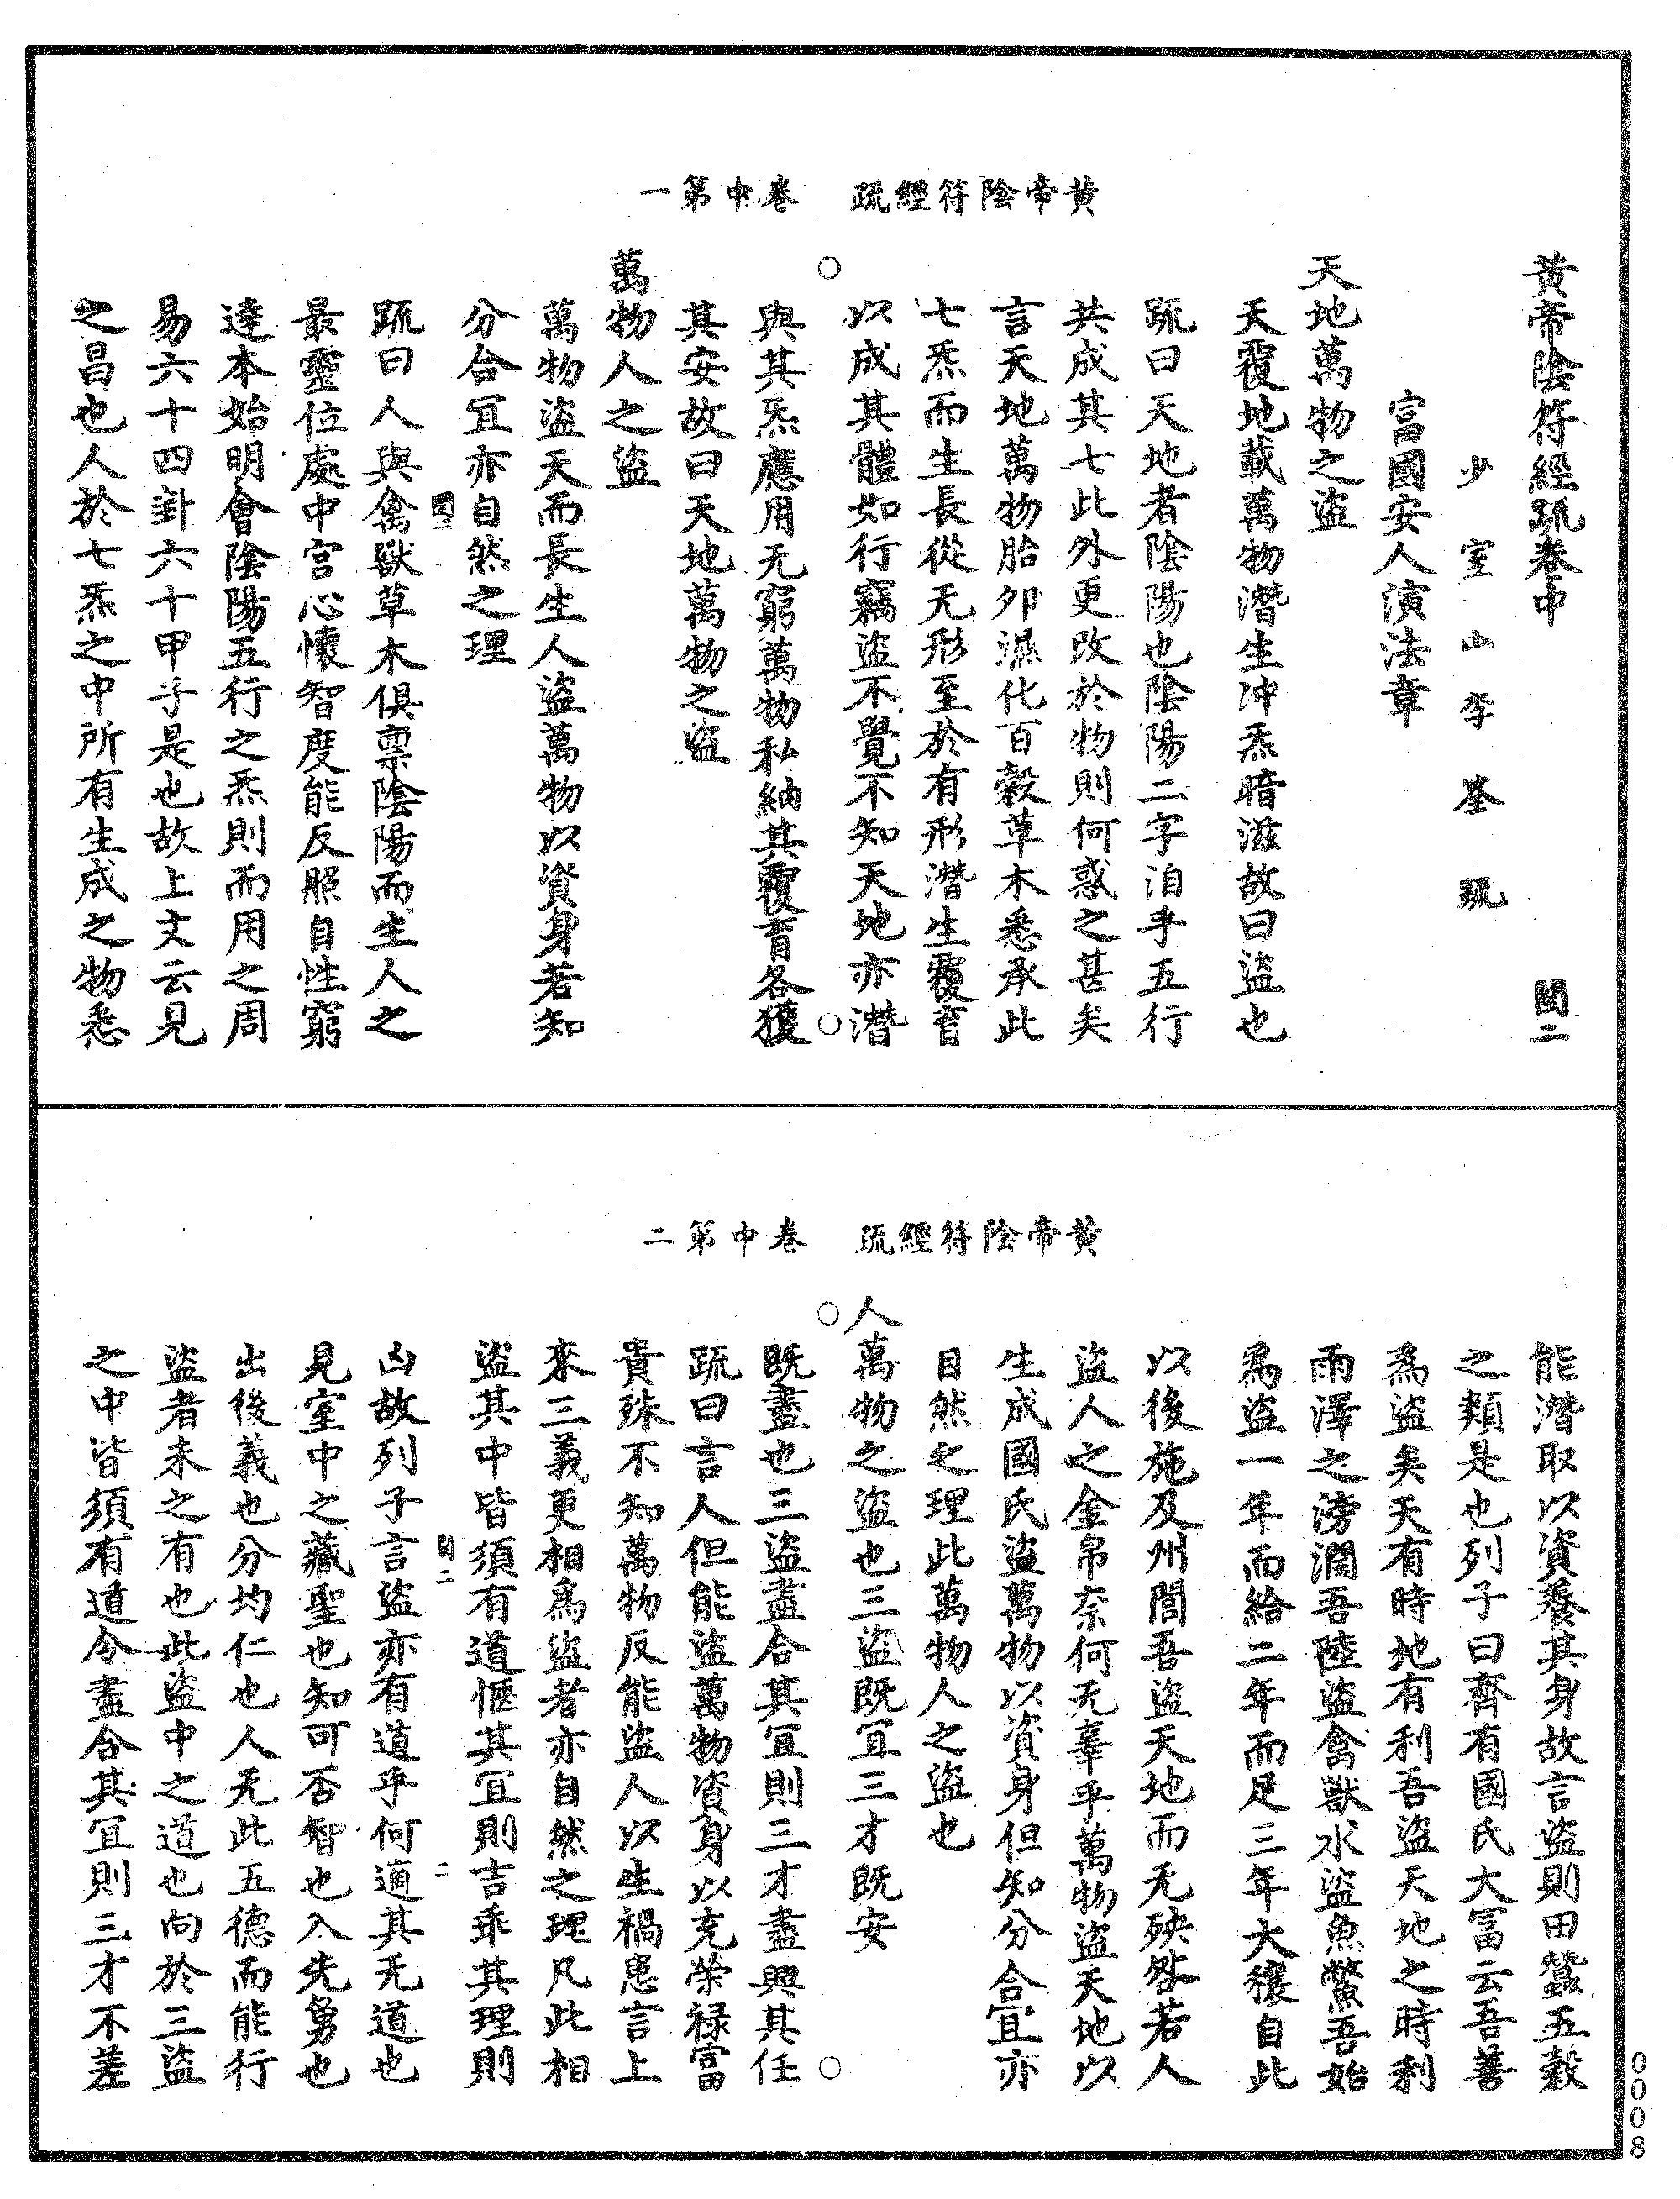 黃帝陰符經疏 卷中第一
黃帝陰符經疏卷中 閏二
少室山李筌疏
富國安人演法章
天地萬物之盜
天覆地載萬物潛生沖炁暗滋故曰盜也
疏曰天地者陰陽也陰陽二字洎乎五行
共成其七此外更改於物則何惑之甚矣
言天地萬物胎卵濕化百穀草木悉承此
七炁而生長從无形至於有形潛生覆育
以成其體如行竊盜不覺不知天地亦潛
與其炁應用无窮萬物私納其覆育各獲
其安故曰天地萬物之盜
萬物人之盜
萬物盜天而長生人盜萬物以資身若知
分合冝亦自然之理
閏二
疏曰人與禽獸草木俱稟陰陽而生人之
最靈位處中宮心懷智度能反照自性窮
達本始明會陰陽五行之炁則而用之周
易六十四卦六十甲子是也故上文云見
之昌也人於七炁之中所有生成之物悉
黃帝陰符經疏 卷中第二
能潛取以資養其身故言盜則田蠶五穀
之類是也列子曰齊有國氏大冨云吾善
爲盜矣天有時地有利吾盜天地之時利
雨澤之滂潤吾陸盜禽獸水盜魚鱉吾始
爲盜一年而給二年而足三年大穰自此
以後施及州閭吾盜天地而无殃咎若人
盜人之金帛奈何无辜乎萬物盜天地以
生成國氏盜萬物以資身但知分合宜亦
自然之理此萬物人之盜也
人萬物之盜也三盜既冝三才既安
既盡也三盜盡合其冝則三才盡興其任
疏曰言人但能盜萬物資身以充榮祿富
貴殊不知萬物反能盜人以生禍患言上
來三義更相爲盜者亦自然之理凡此相
盜其中皆須有道愜其冝則吉乖其理則
閏二 二
凶故列子言盜亦有道乎何適其无道也
見室中之藏聖也知可否智也入先勇也
出後義也分均仁也人无此五德而能行
盜者未之有也此盜中之道也向於三盜
之中皆須有道令盡合其冝則三才不差
0008